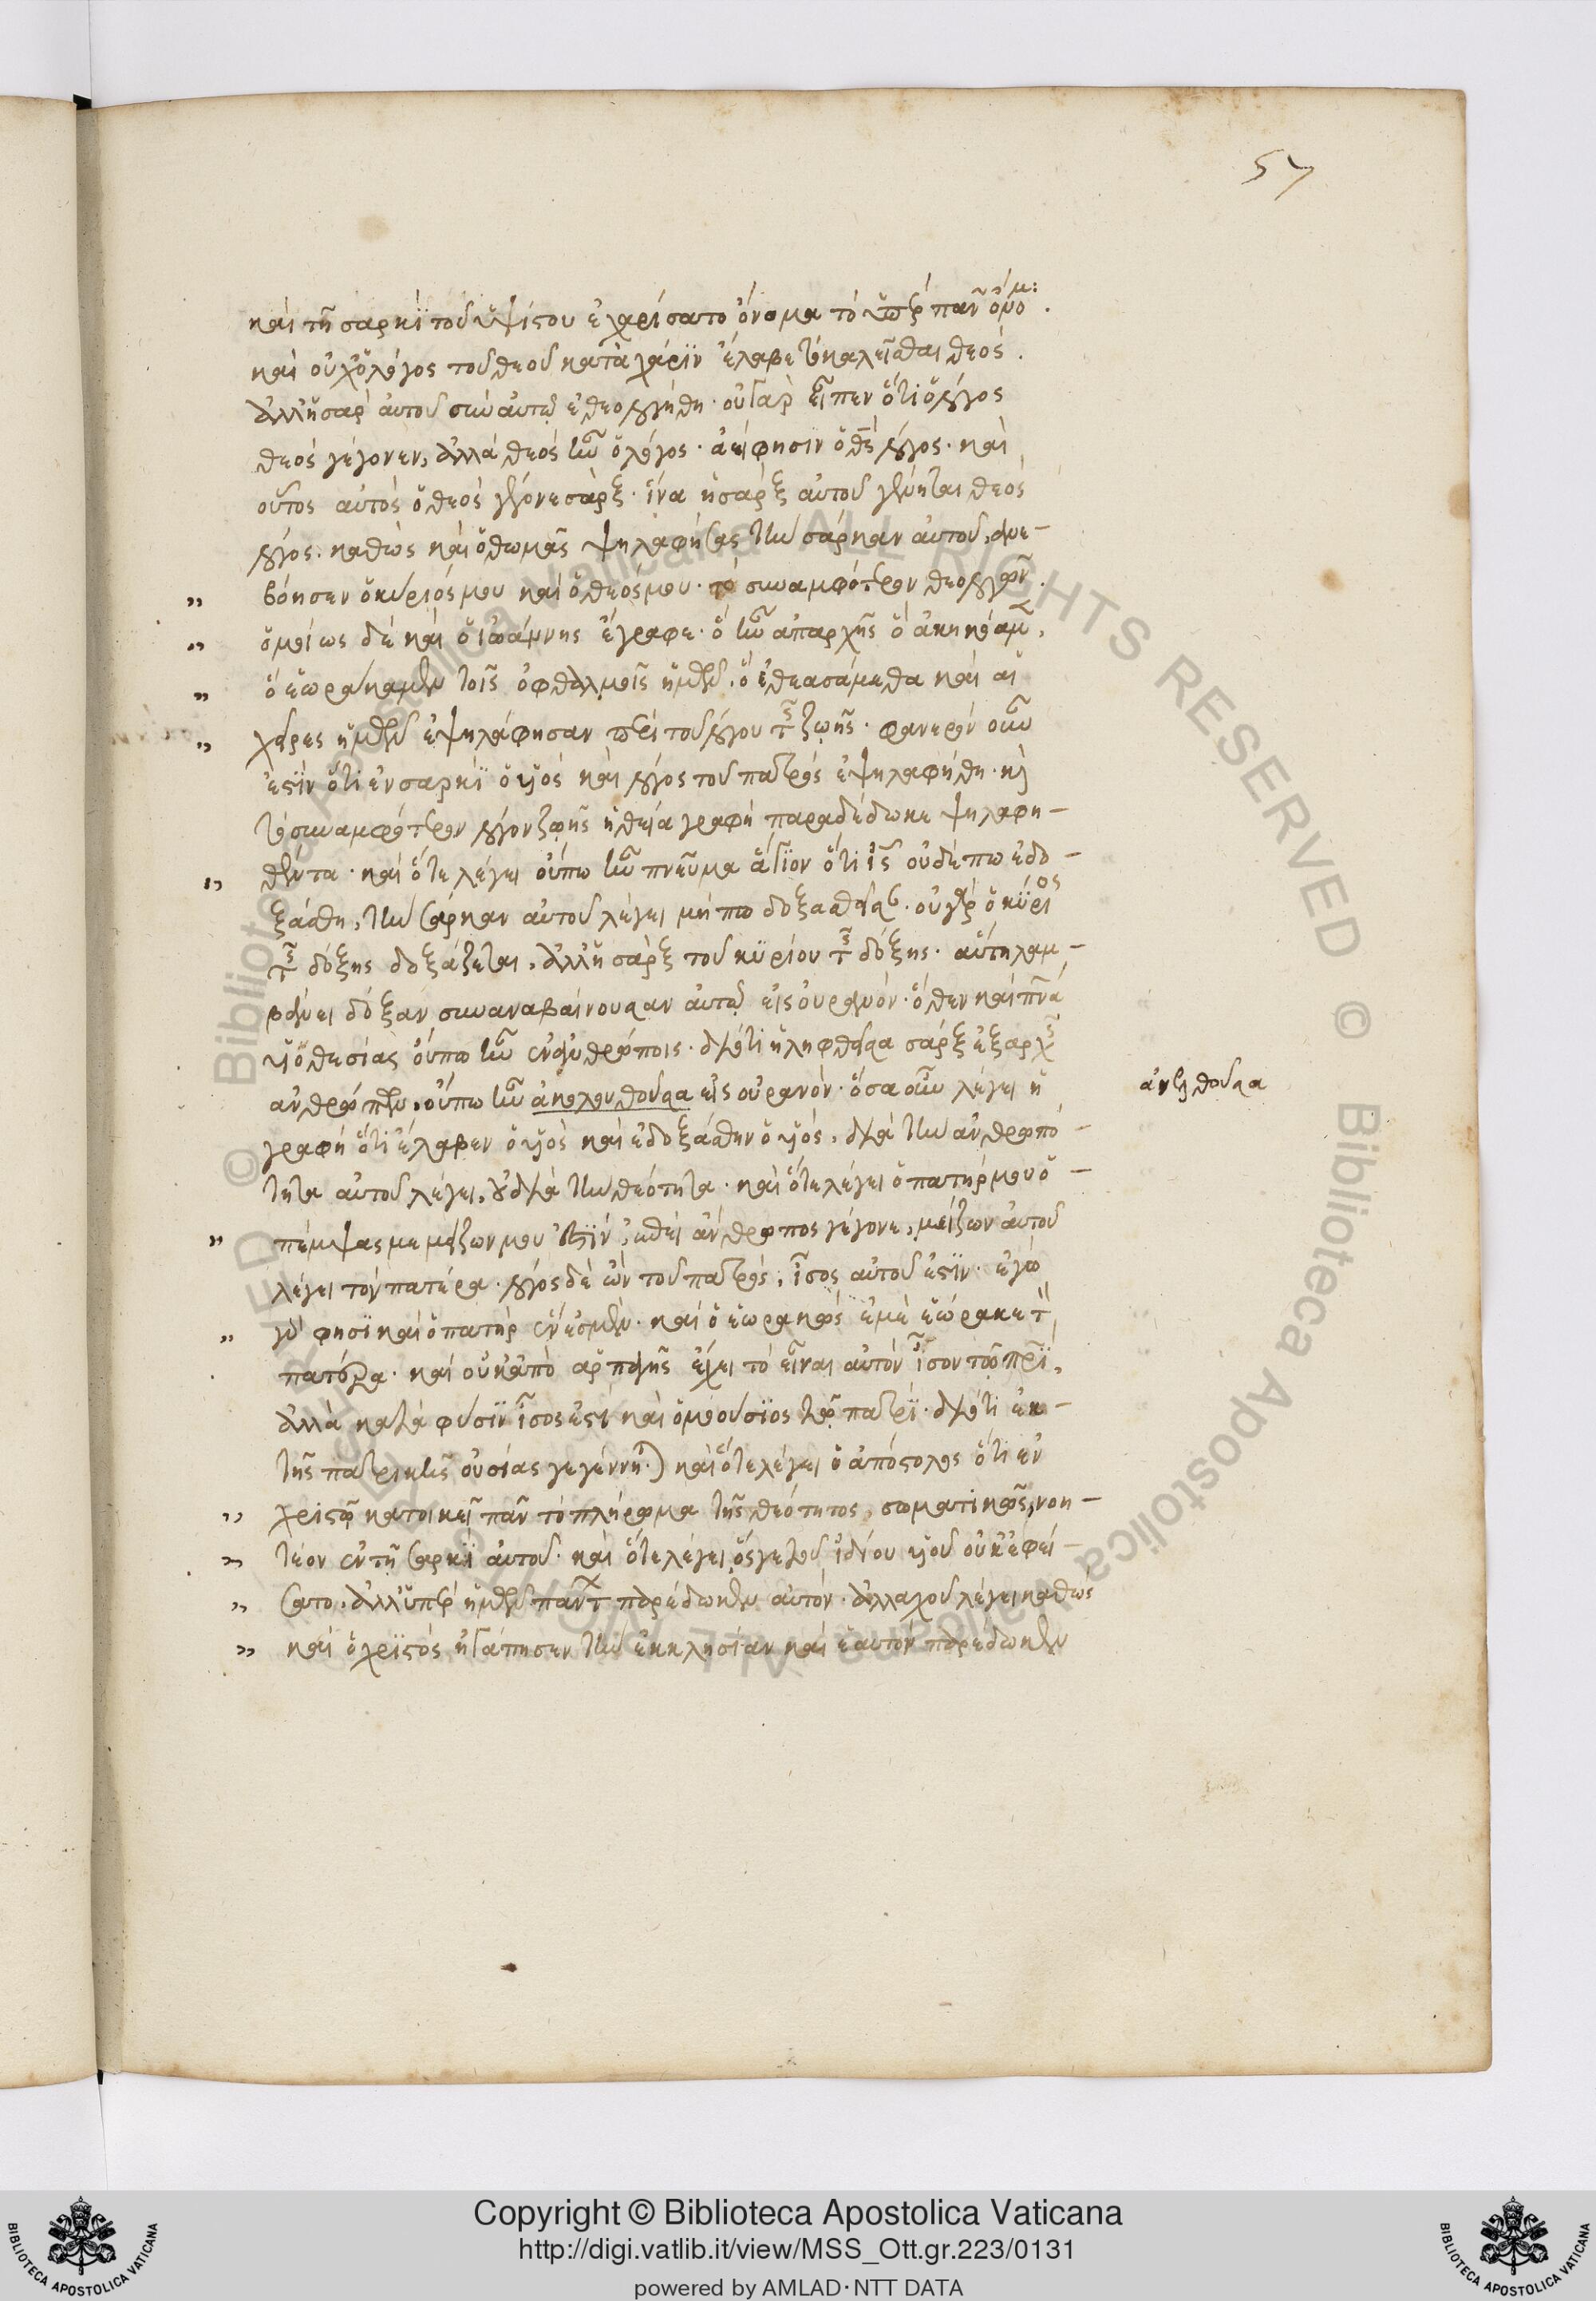 57
καὶ τῇ σαρκὶ τοῦ ὑψίστου ἐχαρίσατο ὄνομα τὸ ὑπὲρ πᾶν ὄνομ:
καὶ οὐχ ὁ λόγος τοῦ θεοῦ κατὰ χάριν ἔλαβε τὸ καλεῖσθαι θεός.
ἀλλ' ἡ σὰρξ αὐτοῦ σὺν αὐτῷ ἐθεολογήθη· οὐ γὰρ εἶπεν ὅτι ὁ λόγος
θεὸς γέγονεν, ἀλλὰ θεὸς ἦν ὁ λόγος· ἀεί φησιν ὁ θς λόγος· καὶ
οὗτος αὐτὸς ὁ θεὸς γέγονε σάρξ· ἵνα ἡ σὰρξ αὐτοῦ γένηται θεὸς
λόγος. καθὼς καὶ ὁ θωμᾶς ψηλαφήσας τὴν σάρκαν αὐτοῦ, ἀνε-
βόησεν ὁ κύριός μου καὶ ὁ θεός μου· τὸ συναμφότερον θεολογῶν.
ὁμοίως δὲ καὶ ὁ ἰωάννης ἔγραφε· ὃ ἦν ἀπαρχῆς ὃ ἀκηκόαμεν,
ὃ ἑωράκαμεν τοῖς ὀφθαλμοῖς ἡμῶν, ὃ ἐθεασάμεθα καὶ αἱ
χεῖρες ἡμῶν ἐψηλάφησαν περὶ τοῦ λόγου τῆς ζωῆς· φανερὸν οὖν
ἐστὶν ὅτι ἐν σαρκὶ ὁ υἱὸς καὶ λόγος τοῦ πατρὸς ἐψηλαφήθη· κὶ
τὸ συναμφότερον λόγον ζωῆς ἡ θεία γραφὴ παραδέδωκε ψηλαφη-
θέντα· καὶ ὅτε λέγει οὔπω ἦν πνεῦμα ἅγιον ὅτι ἰς οὐδέπω ἐδο-
ξάσθη, τὴν σάρκαν αὐτοῦ λέγει μήπω δοξασθεῖσαν· οὐ γὰρ ὁ κύριος
τῆς δόξης δοξάζεται, ἀλλ' ἡ σὰρξ τοῦ κυρίου τῆς δόξης· αὕτη λαμ-
βάνει δόξαν συναναβαίνουσαν αὐτῷ εἰς οὐρανόν· ὅθεν καὶ πνα
υἱοθεσίας οὔπω ἦν ἐν ἀνθρώποις· διότι ἡ ληφθεῖσα σὰρξ ἐξ ἀρχῆς
ἀνθρώπων, οὔπω ἦν ἀκολουθοῦσα εἰς οὐρανόν· ὅσα οὖν λέγει ἡ
ἀνελθοῦσα
γραφὴ ὅτι ἔλαβεν ὁ υἱὸς καὶ ἐδοξάσθην ὁ υἱός, διὰ τὴν ἀνθρωπό-
τητα αὐτοῦ λέγει, οὐ διὰ τὴν θεότητα· καὶ ὅτε λέγει ὁ πατήρ μου ὁ-
πέμψας με μείζων μου ἐστίν, ἐπεὶ ἄνθρωπος γέγονε, μείζων αὐτοῦ
λέγει τὸν πατέρα· λόγος δὲ ὢν τοῦ πατρός, ἴσος αὐτοῦ ἐστίν· ἐγὼ
γάρ φησι καὶ ὁ πατὴρ ἕν ἐσμεν· καὶ ὁ ἑωρακὼς ἐμὲ ἑώρακε τὸν
πατέρα· καὶ οὐκ ἀπὸ ἁρπαγῆς ἔχει τὸ εἶναι αὐτὸν ἴσον τῷ πρι,
ἀλλὰ κατὰ φύσιν ἴσος ἐστὶ καὶ ὁμοούσιος τῷ πατρί· διότι ἐκ-
τῆς πατρικῆς οὐσίας γεγέννη.) καὶ ὅτε λέγει ὁ ἀπόστολος ὅτι ἐν
χριστῷ κατοικεῖ πᾶν τὸ πλήρωμα τῆς θεότητος, σωματικῶς, νοη-
τέον ἐν τῇ σαρκὶ αὐτοῦ· καὶ ὅτε λέγει, ὅς γε τοῦ ἰδίου υἱοῦ οὐκ ἐφεί-
σατο, ἀλλ' ὑπὲρ ἡμῶν πάντων παρέδωκεν αὐτόν· ἀλλαχοῦ λέγει καθὼς
καὶ ὁ χριστὸς ἠγάπησεν τὴν ἐκκλησίαν καὶ ἑαυτὸν παρέδωκεν
Copyright © Biblioteca Apostolica Vaticana
http://digi.vatlib.it/view/MSS_Ott.gr.223/0131
powered by AMLAD·NTT DATA